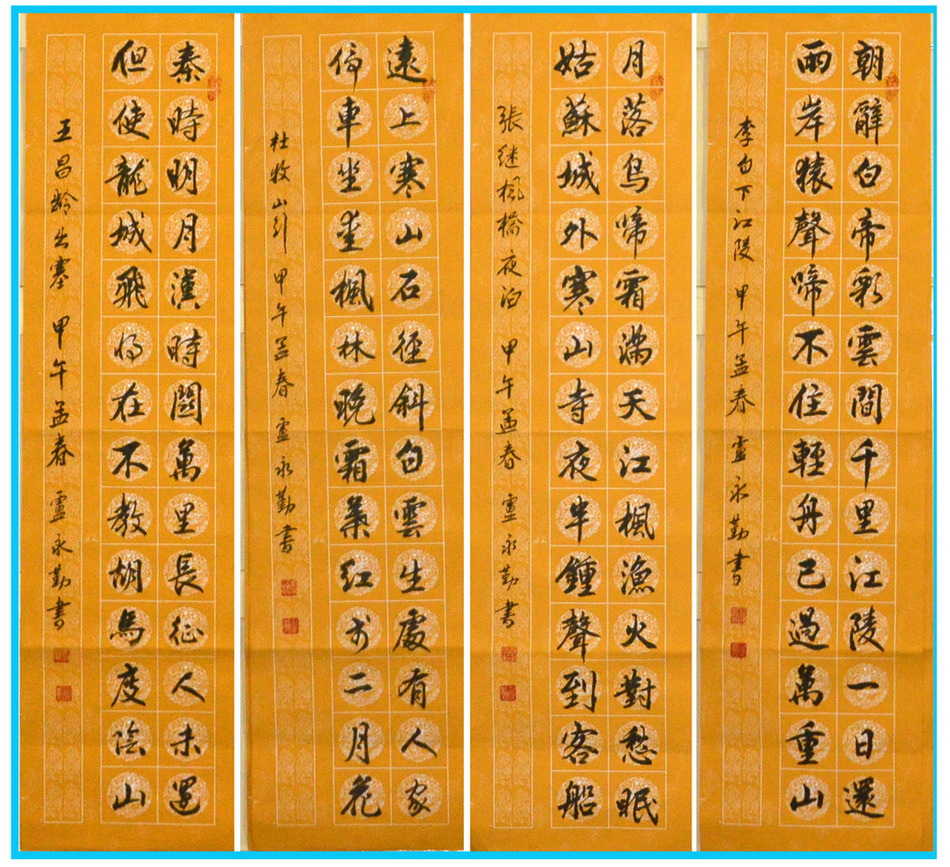 朝辭白帝彩雲間千里江陵一日還
兩岸猿聲啼不住輕舟已過萬重山
李白下江陵 甲午孟春 盧永勤書
月落烏啼霜滿天江楓漁火對愁眠
姑蘇城外寒山寺夜半鍾聲到客船
張继楓橋夜泊 甲午孟春 盧永勤書
遠上寒山石徑斜白雲生處有人家
停車坐愛楓林晚霜葉红於二月花
杜牧山行 甲午孟春 盧永勤書
秦時明月漢時關萬里長征人未還
但使龍城飛將在不教胡馬度陰山
王昌齡出塞 甲午孟春 盧永勤書